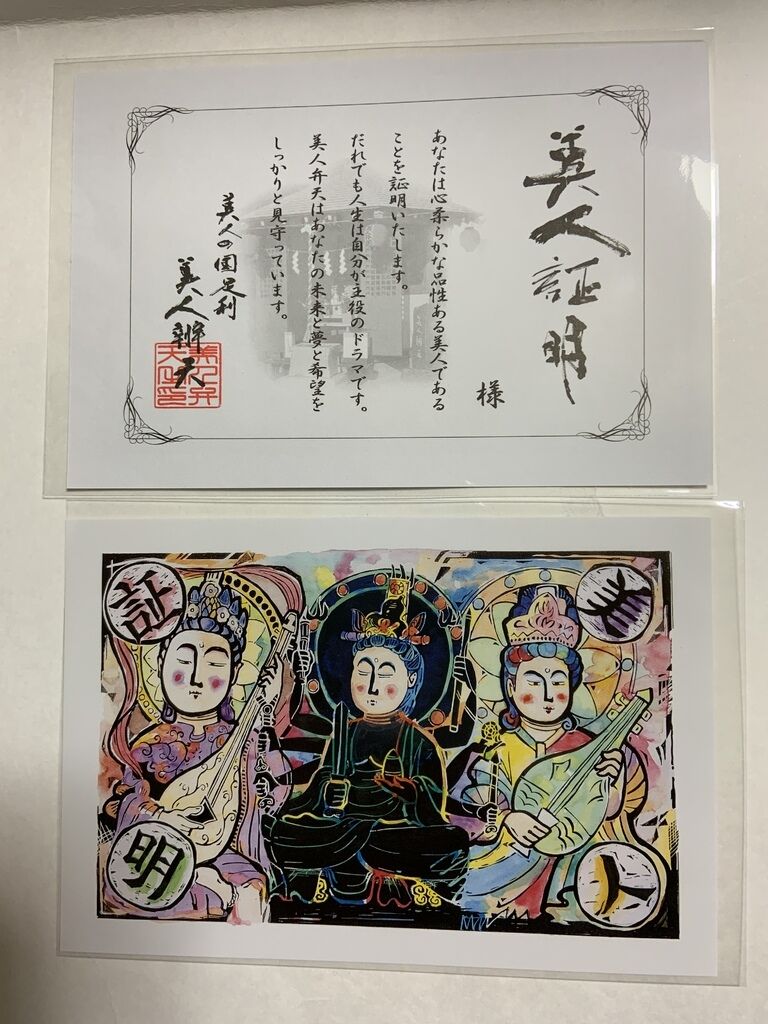 美人証明
様
あなたは心柔らかな品性ある美人である
ことを証明いたします。
だれでも人生は自分が主役のドラマです。
美人弁天はあなたの未来と夢と希望を
しっかりと見守っています。
美人の国足利
美人辨天
美
人
証
明